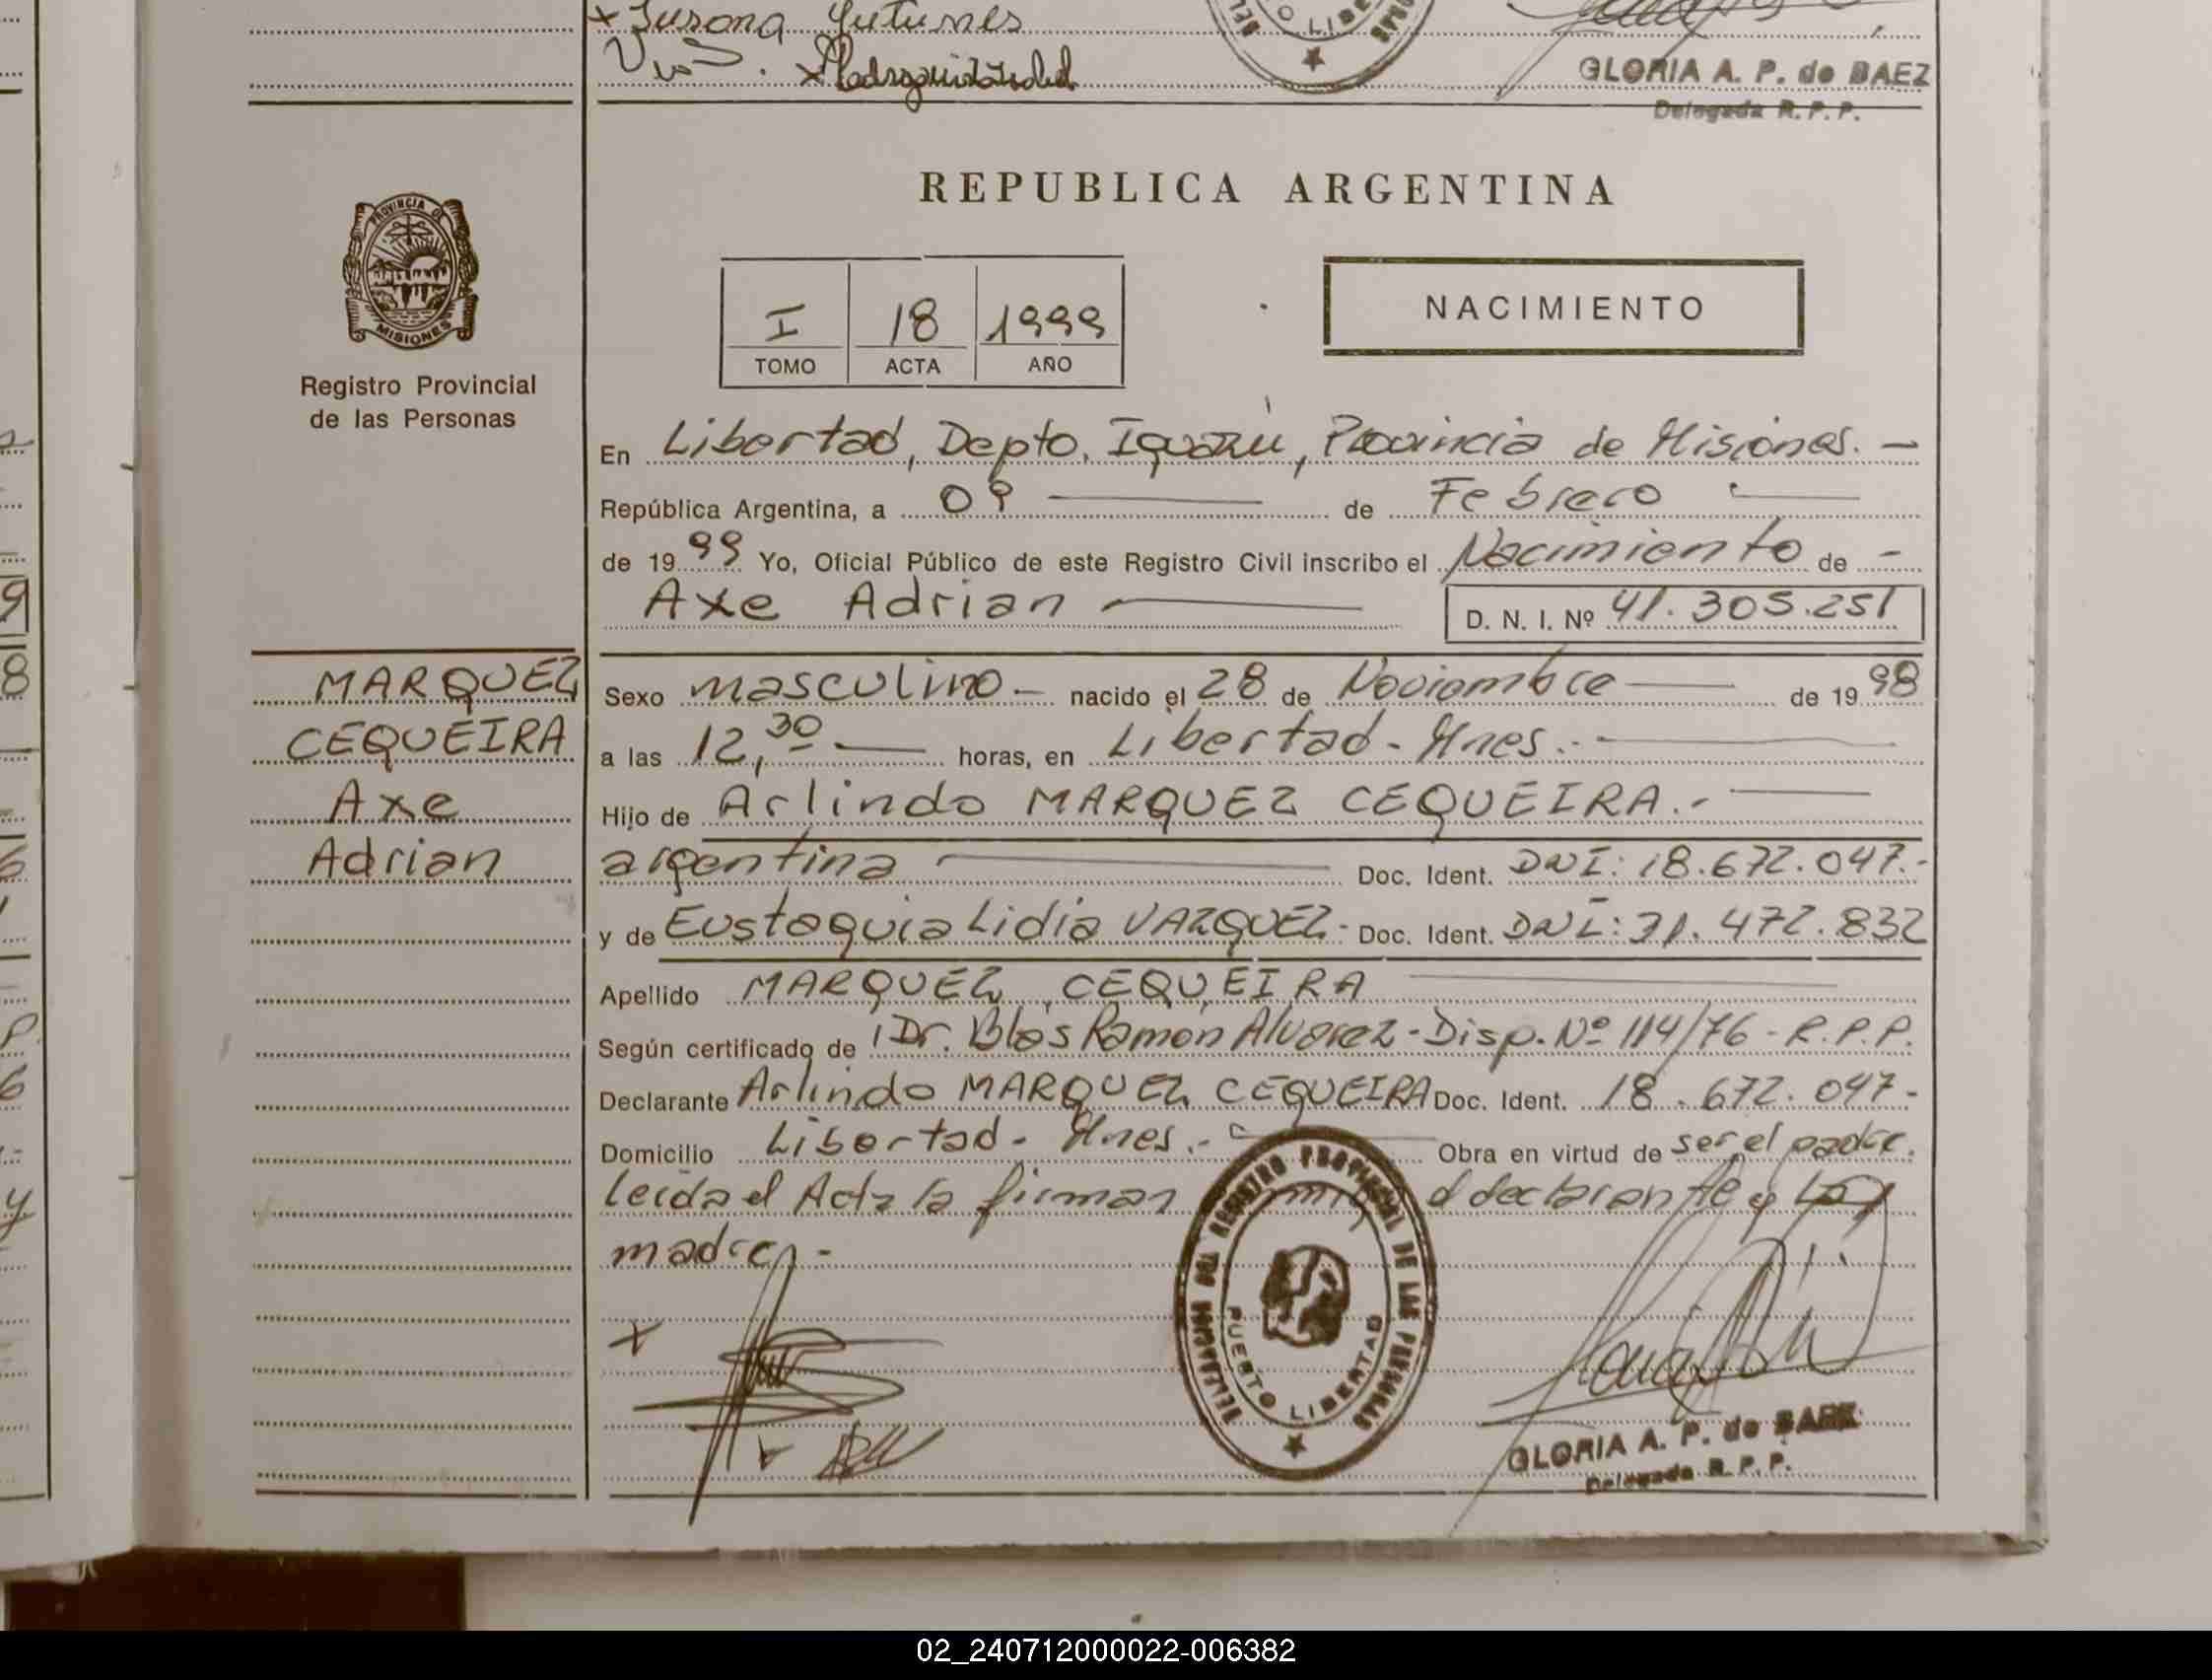 x Susona Yutunes
GLORIA A. P. de BAEZ
Delegada R. P. P.
PROVINCIA DE
MISIONES
Registro Provincial
de las Personas
REPUBLICA ARGENTINA
I 18 1999
TOMO ACTA AÑO
NACIMIENTO
En Libertad, Depto. Iguazú, Provincia de Misiones. -
República Argentina, a 09 de Febrero
de 1999 Yo, Oficial Público de este Registro Civil inscribo el Nacimiento de -
Axe Adrian
D. N. I. Nº 41.305.251
MARQUEZ
CEQUEIRA
Axe
Adrian
Sexo masculino - nacido el 28 de Noviembre de 1998
a las 12,30 horas, en Libertad - Mnes.-
Hijo de Arlindo MARQUEZ CEQUEIRA.-
argentina Doc. Ident. DNI: 18.672.047.-
y de Eustaquia Lidia VAZQUEZ - Doc. Ident. DNI: 31.472.832
Apellido MARQUEZ CEQUEIRA
Según certificado de Dr. Blás Ramón Alvarez - Disp. Nº 114/76 - R.P.P.
Declarante Arlindo MARQUEZ CEQUEIRA Doc. Ident. 18.672.047-
Domicilio Libertad - Mnes.- Obra en virtud de ser el padre.
leída el Acta la firman el declarante y la
madre.-
DELEGACION DEL REGISTRO PROVINCIAL DE LAS PERSONAS
PUERTO LIBERTAD
GLORIA A. P. de BAEZ
Delegada R. P. P.
02_240712000022-006382